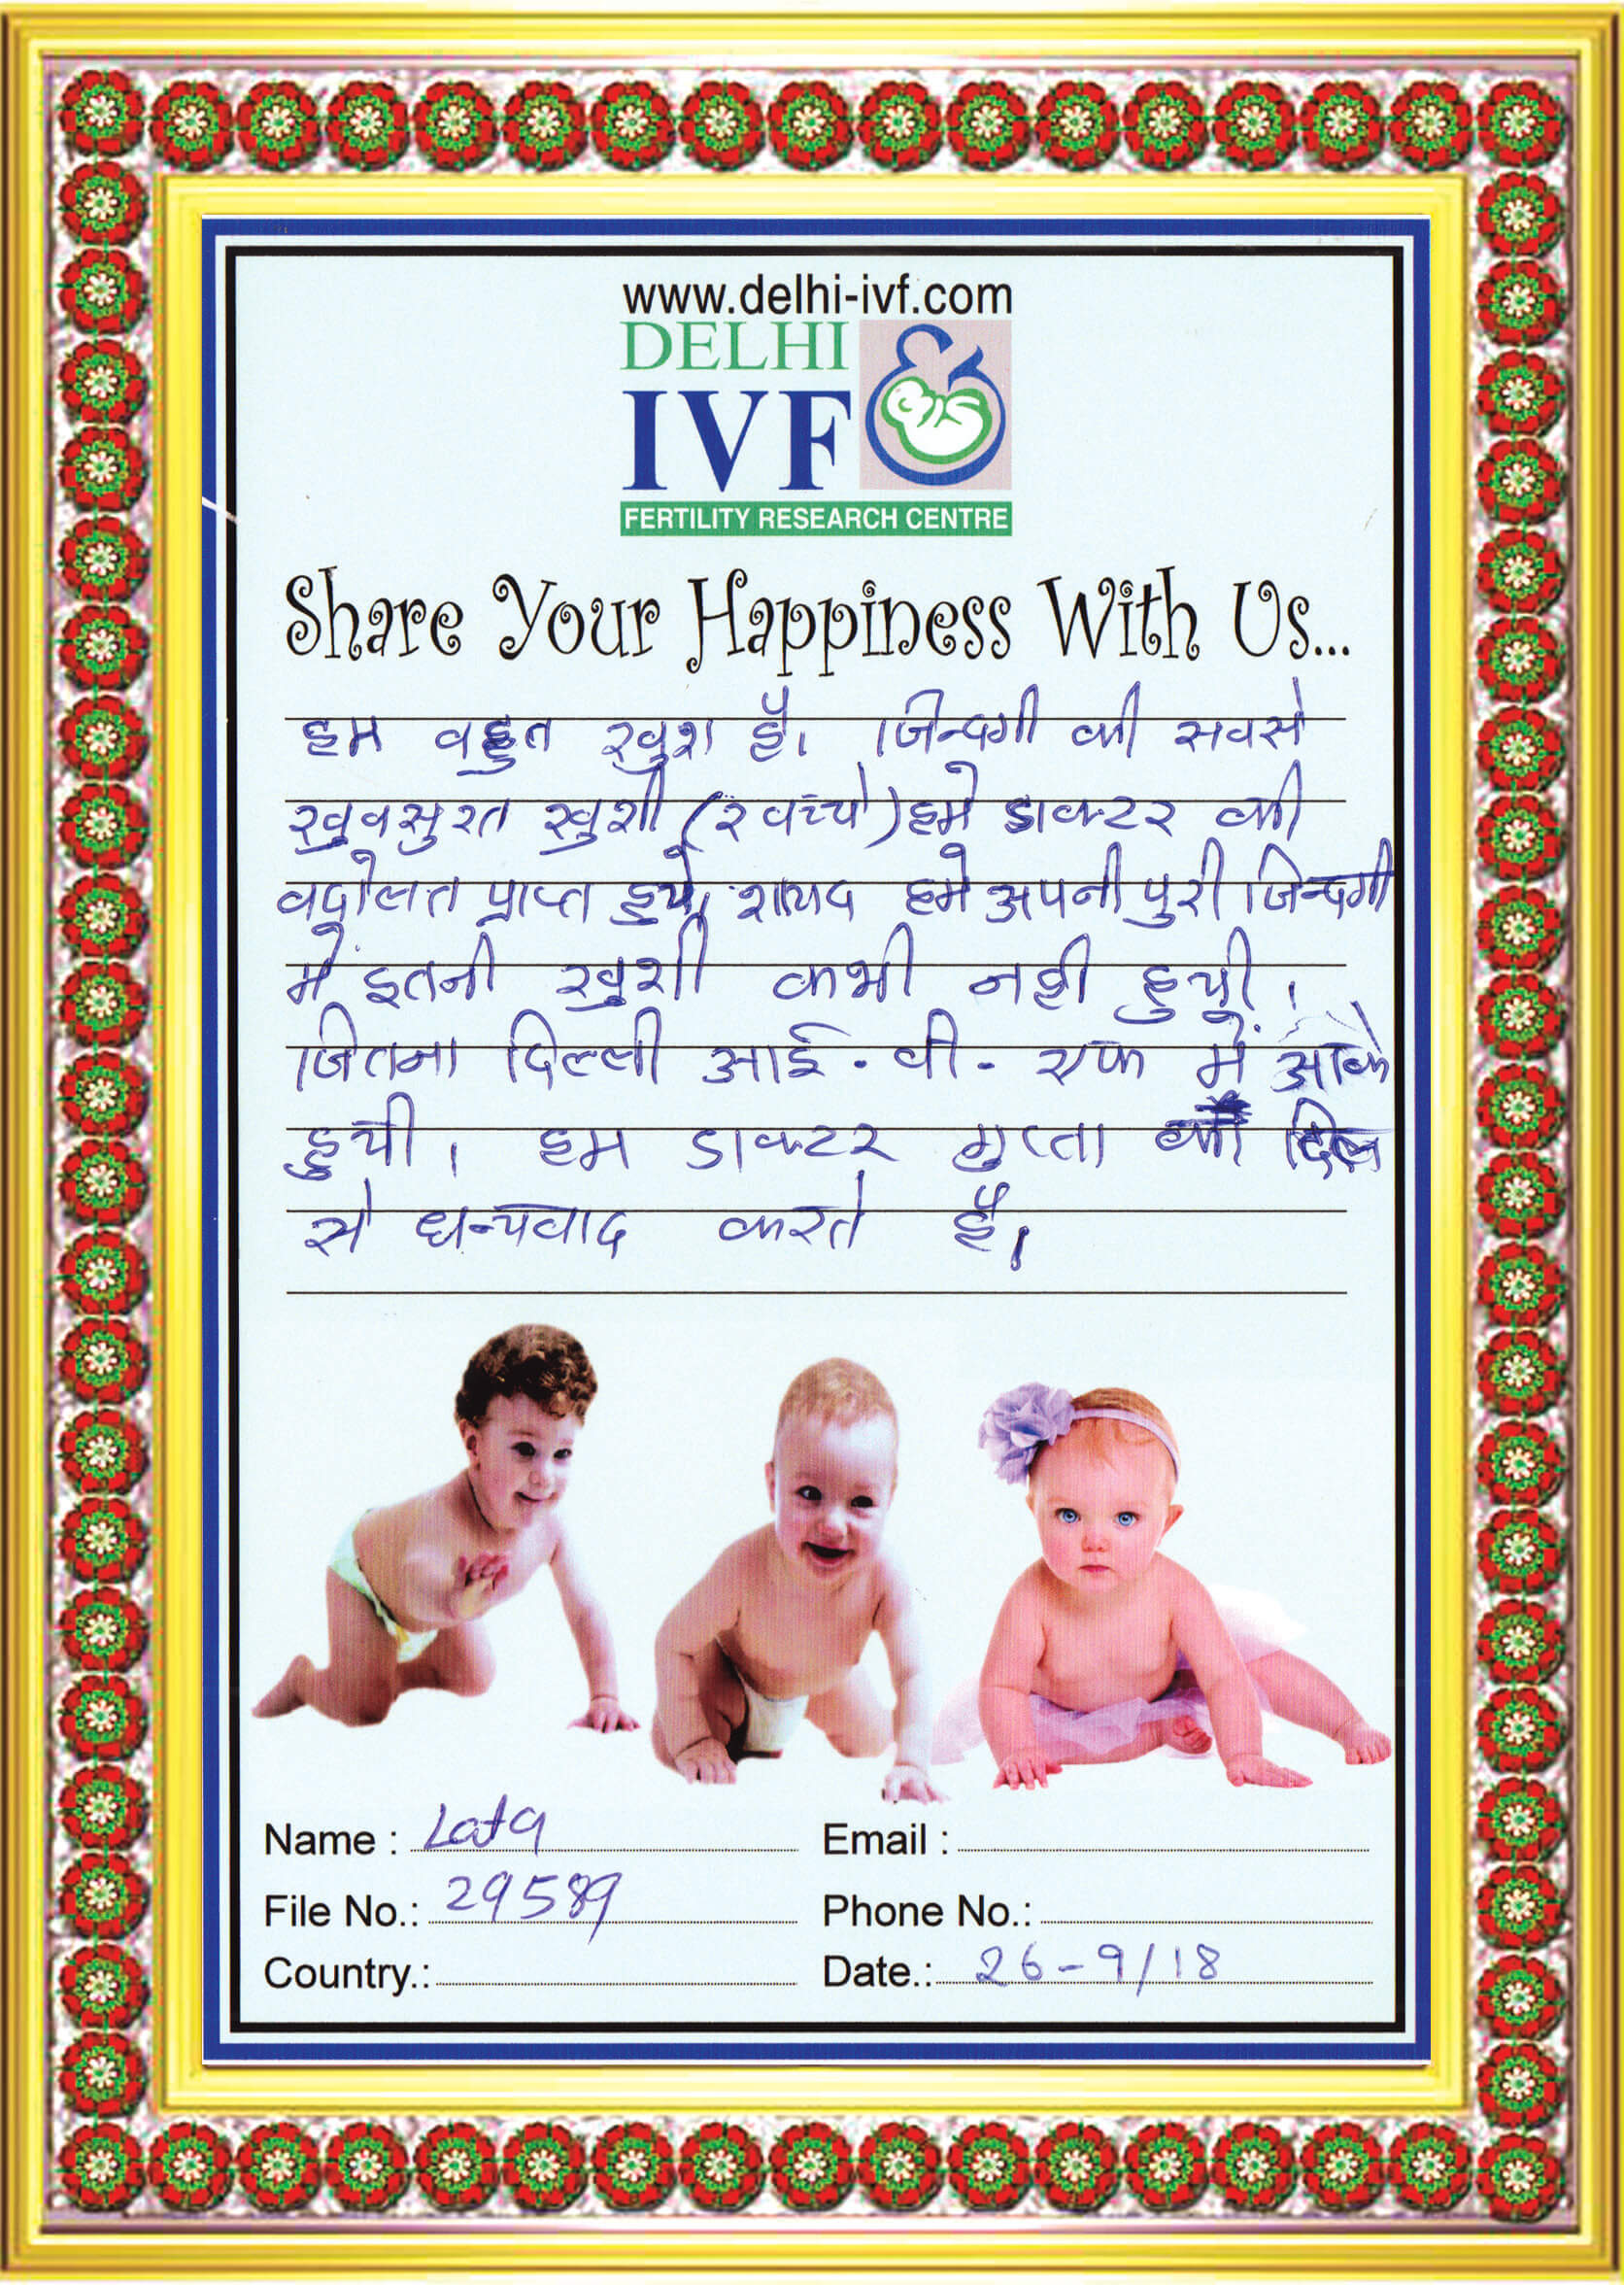 www.delhi-ivf.com
DELHI
IVF
FERTILITY RESEARCH CENTRE
Share Your Happiness With Us...
हम वहुत खुश है। जिन्दगी की सवसे
खुवसुरत खुशी (२ वच्चे) हमे डाक्टर की
वदोलत प्राप्त हुये, शायद हमे अपनी पुरी जिन्दगी
में इतनी खुशी कभी नही हुयी।
जितना दिल्ली आई. वी. एफ में आके
हुयी। हम डाक्टर गुप्ता का दिल
से धन्यवाद करते है।
Name : Lata
Email :
File No.: 29589
Phone No.:
Country.:
Date.: 26-9/18